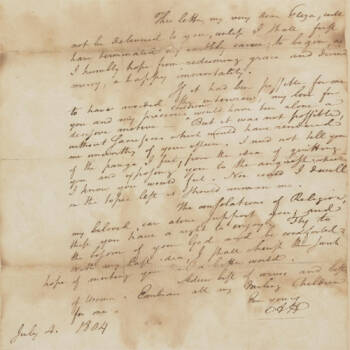 This letter, my very dear Eliza, will
not be delivered to you, unless I shall first
have terminated my earthly career; to begin, as
I humbly hope from redeeming grace and divine
mercy, a happy immortality.
If it had been possible for me
to have avoided the interview, my love for
you and my precious children would have been alone a
decisive motive. But it was not possible,
without sacrifices which would have rendered
me unworthy of your esteem. I need not tell you
of the pangs I feel, from the idea of quitting
you and exposing you to the anguish which
I know you would feel. Nor could I dwell
on the topic lest it should unman me.
The consolations of Religion,
my beloved, can alone support you; and
these you have a right to enjoy. Fly to
the bosom of your God and be comforted.
With my last idea, I shall cherish the sweet
hope of meeting you in a better world.
Adieu best of wives and best
of Women. Embrace all my darling Children
for me.
Ever yours
AH
July 4. 1804